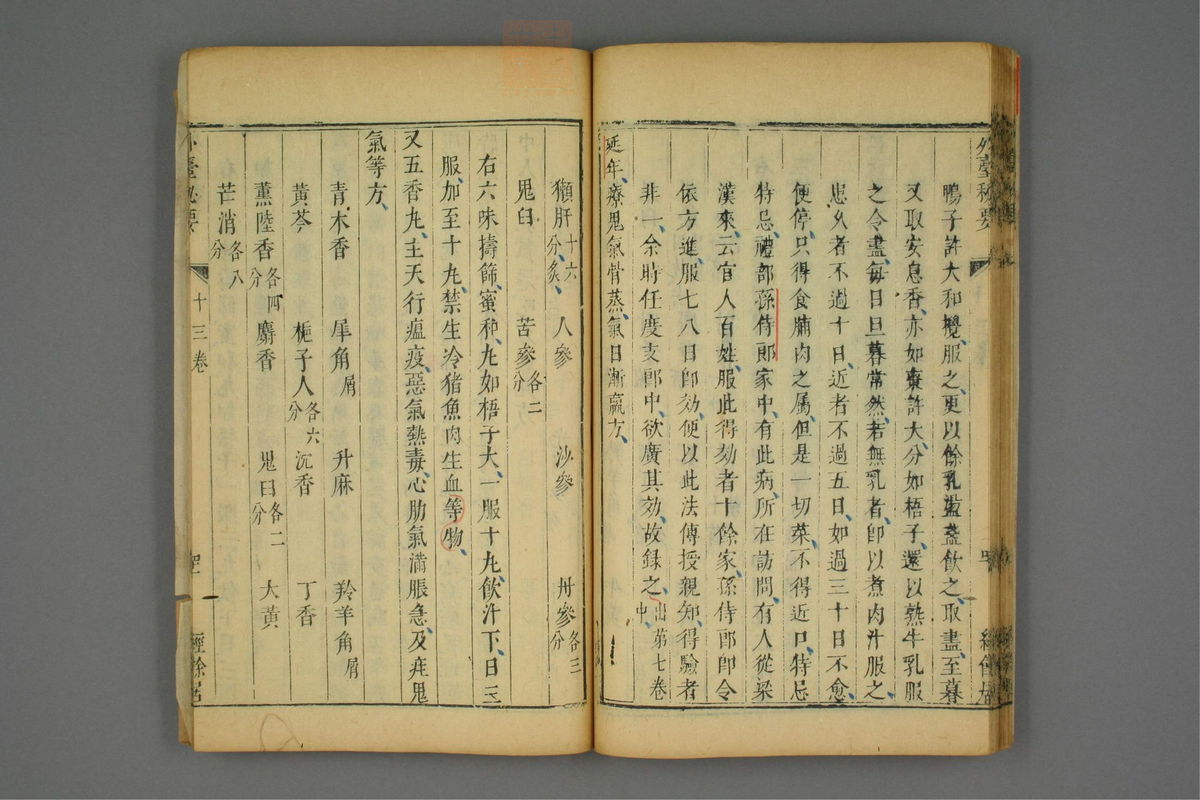 外臺秘要
鴨子許大和攪服之更以餘乳盪盞飲之取盡至暮
又取安息香亦如棗許大分如梧子還以熟牛乳服
之令盡每日旦暮常然若無乳者卽以煮肉汁服之
患久者不過十日近者不過五日如過三十日不愈
便停只得食脯肉之屬但是一切菜不得近口特忌
特忌禮部孫侍郎家中有此病所在訪問有人從梁
漢來云官人百姓服此得効者十餘家孫侍郎卽令
依方進服七八日卽効便以此法傳授親知得驗者
非一余時任度支郎中欲廣其効故録之出第七卷中
延年療鬼氣骨蒸氣日漸羸方
獺肝十六分炙 人參 沙參 丹參各三分
鬼臼 苦參各二分
右六味擣篩蜜和丸如梧子大一服十丸飲汁下日三
服加至十丸禁生冷猪魚肉生血等物
又五香丸主天行瘟疫惡氣熱毒心肋氣滿脹急及疰鬼
氣等方
青木香 犀角屑 升麻 羚羊角屑
黃芩 梔子人各六分 沉香 丁香
薰陸香各四分 麝香 鬼臼各二分 大黃
芒消各八分
外臺秘要 十三卷 經餘居